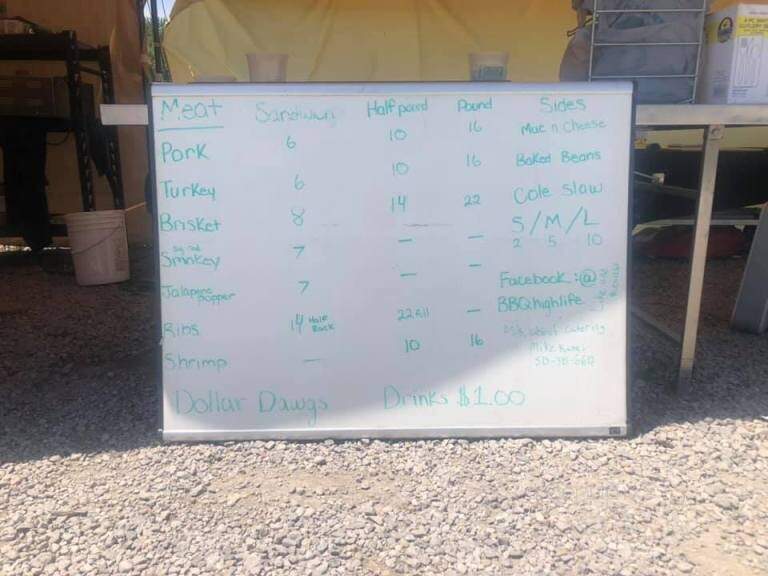 Meat Sandwich Half pound Pound Sides
Pork 6 10 16 Mac n Cheese
Turkey 6 10 16 Baked Beans
Brisket 8 14 22 Cole Slaw
Smokey 7 — — S/M/L
2 5 10
Jalapeno popper 7 — — Facebook: @
BBQhighlife
Ribs 14 Half Rack 22 full —
Shrimp — 10 16
Ask about catering
Dollar Dawgs Drinks $1.00